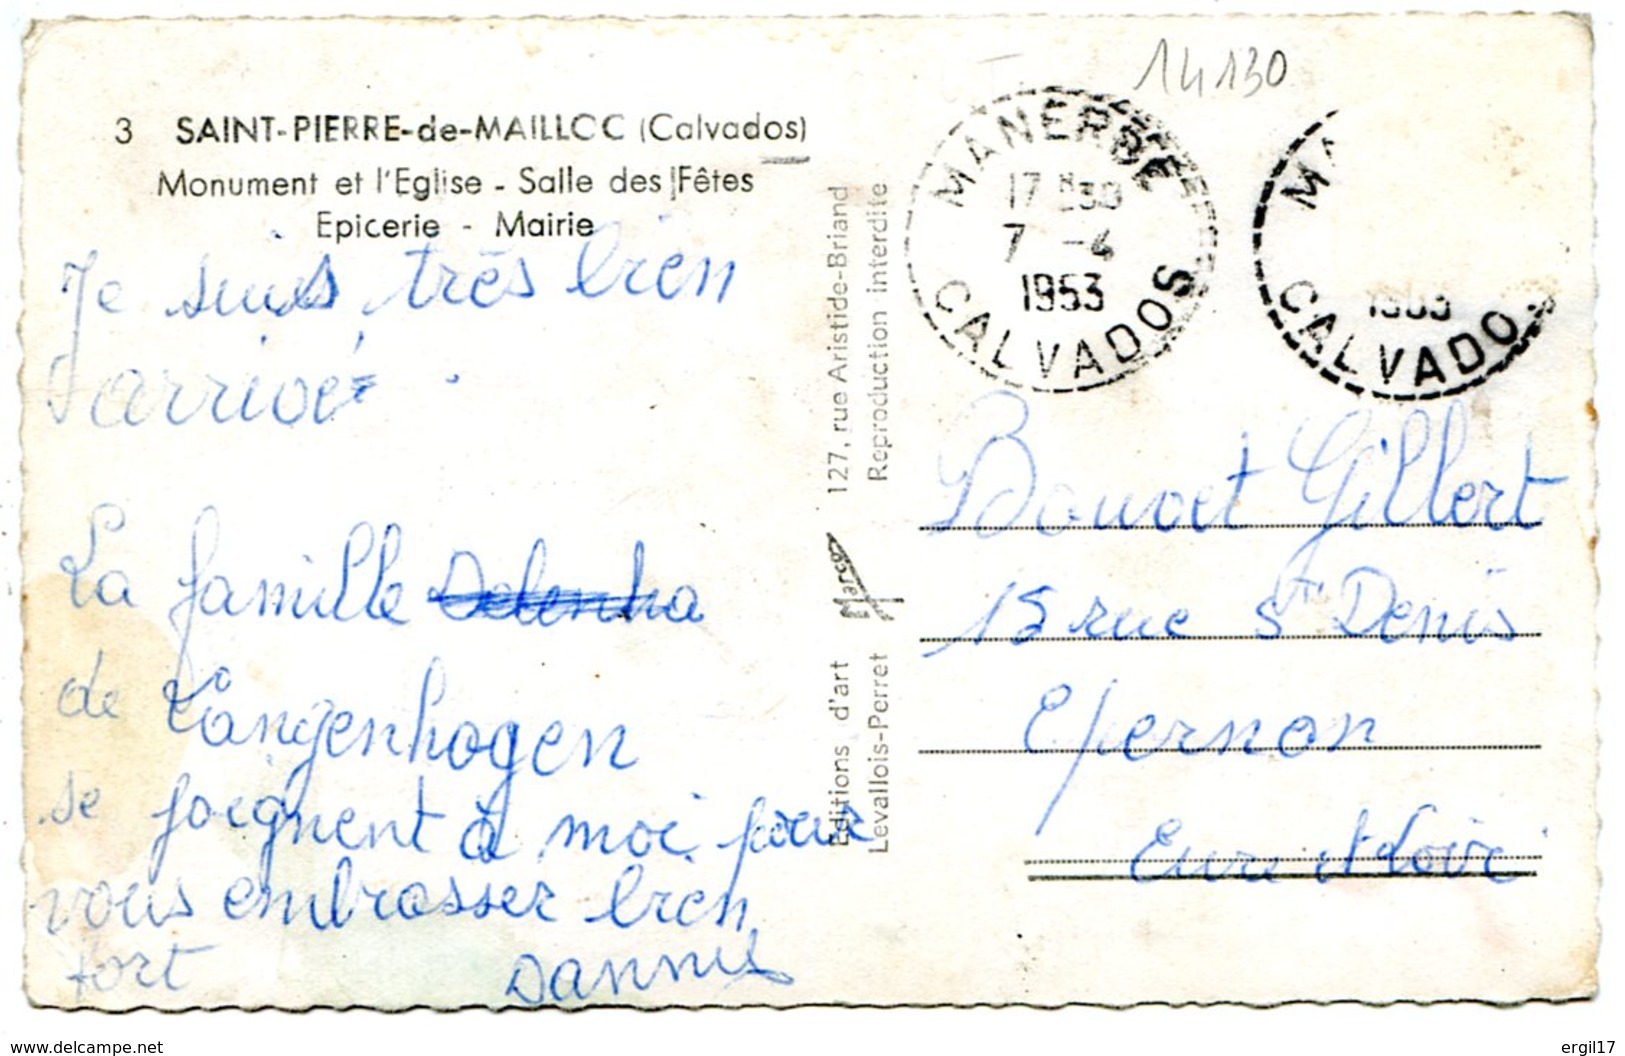 14130
3 SAINT-PIERRE-de-MAILLOC (Calvados)
Monument et l'Eglise - Salle des Fêtes
Epicerie - Mairie
Je suis très bien
arrivé.
La famille
de Langenhogen
se joignent à moi pour
vous embrasser bien
fort Dannie
127, rue Aristide-Briand
Reproduction interdite
Marco
Editions d'art
Levallois-Perret
MANERBE
17 H30
7 -4
1953
CALVADOS
MA
1953
CALVADO
Bouvet Gillert
15 rue St Denis
Epernon
Eure et Loir
www.delcampe.net
ergil17